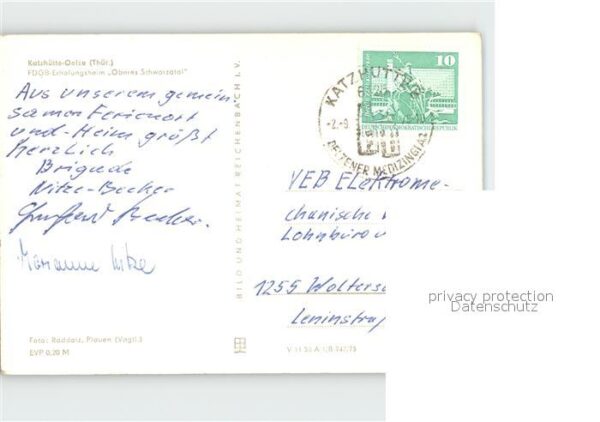 Katzhütte-Oelze (Thür.)
FDGB-Erholungsheim „Oberes Schwarzatal"
Aus unserem gemein
samen Ferienort
und-Heim grüßt
herzlich
Brigade
Nitze-Becker
Becker.
Marianne Nitze
Foto: Raddatz, Plauen (Vogtl.)
EVP 0,20 M
BILD UND HEIMAT REICHENBACH I. V.
V 11 50 A 1/B 947/75
10
DEUTSCHE DEMOKRATISCHE REPUBLIK
KATZHÜTTE
-2.-9.
MEDIZINGLAS
VEB Elektrome-
chanische
Lohnbüro
1255 Woltersd
Leninstraß
privacy protection
Datenschutz